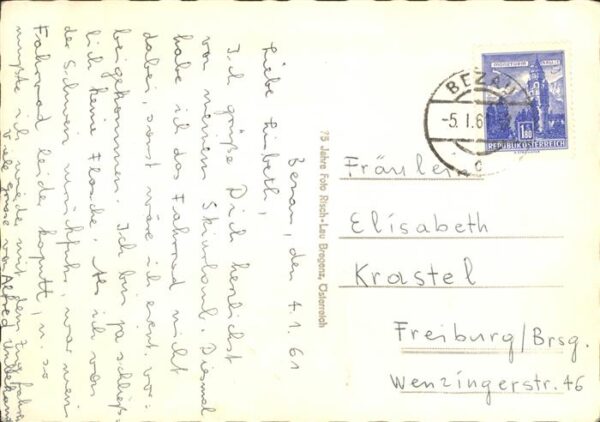 Bezau, den 4.1.61
Liebe Lisbeth,
Ich grüße Dich herzlichst
von meinem Skiurlaub. Diesmal
habe ich das Fahrrad nicht
dabei, sonst wäre ich event. vor-
beigekommen. Ich bin ja schließ-
lich keine Flasche. Als ich von
der Schweiz zurückfuhr, war mein
Fahrrad leider kaputt, u. so
mußte ich wieder mit dem Zug fahren
Viele Grüße von Alfred
75 Jahre Foto Risch-Lau Bregenz, Österreich
BEZAU
-5.I.6
1.80
REPUBLIK ÖSTERREICH
Fräulein
Elisabeth
Krastel
Freiburg/Brsg.
Wenzingerstr. 46